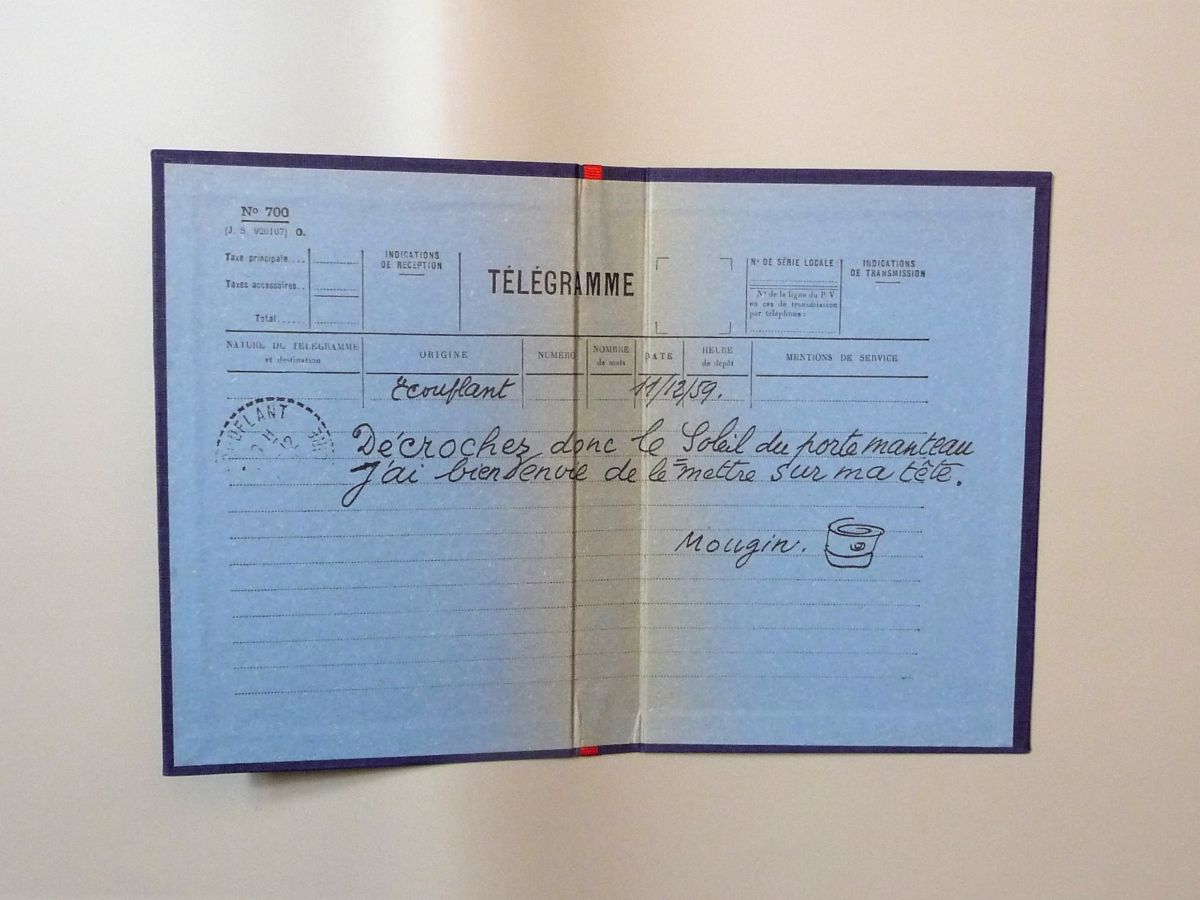 No 700
(J. S. 920107) O.
Taxe principale....
Taxes accessoires..
Total.....
INDICATIONS
DE RÉCEPTION
TÉLÉGRAMME
No DE SÉRIE LOCALE
No de la ligne du P. V.
en cas de transmission
par téléphone:
INDICATIONS
DE TRANSMISSION
NATURE DU TÉLÉGRAMME
et destination
ORIGINE
NUMÉRO
NOMBRE
de mots
DATE
HEURE
de dépôt
MENTIONS DE SERVICE
Ecouflant
11/12/59.
OUFLANT
11 12
Décrochez donc le Soleil du porte manteau
J'ai bien envie de le mettre sur ma tête.
Mougin.